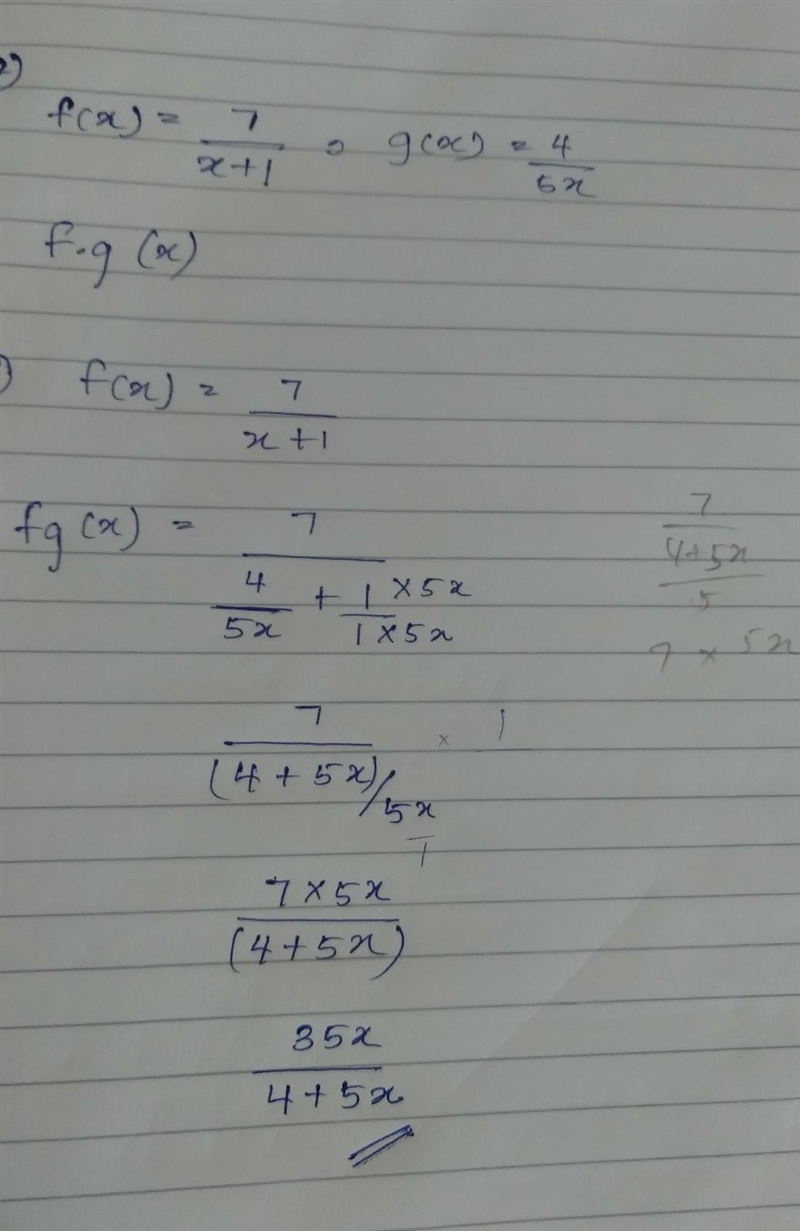 2)
f(x) = 7/(x+1) , g(x) = 4/5x
f.g (x)
) f(x) = 7/(x+1)
fg(x) = 7/(4/5x + 1×5x/1×5x)
7/((4+5x)/5x) × 1
7×5x/(4+5x)
35x/(4+5x)
7/((4+5x)/5)
7 × 5x